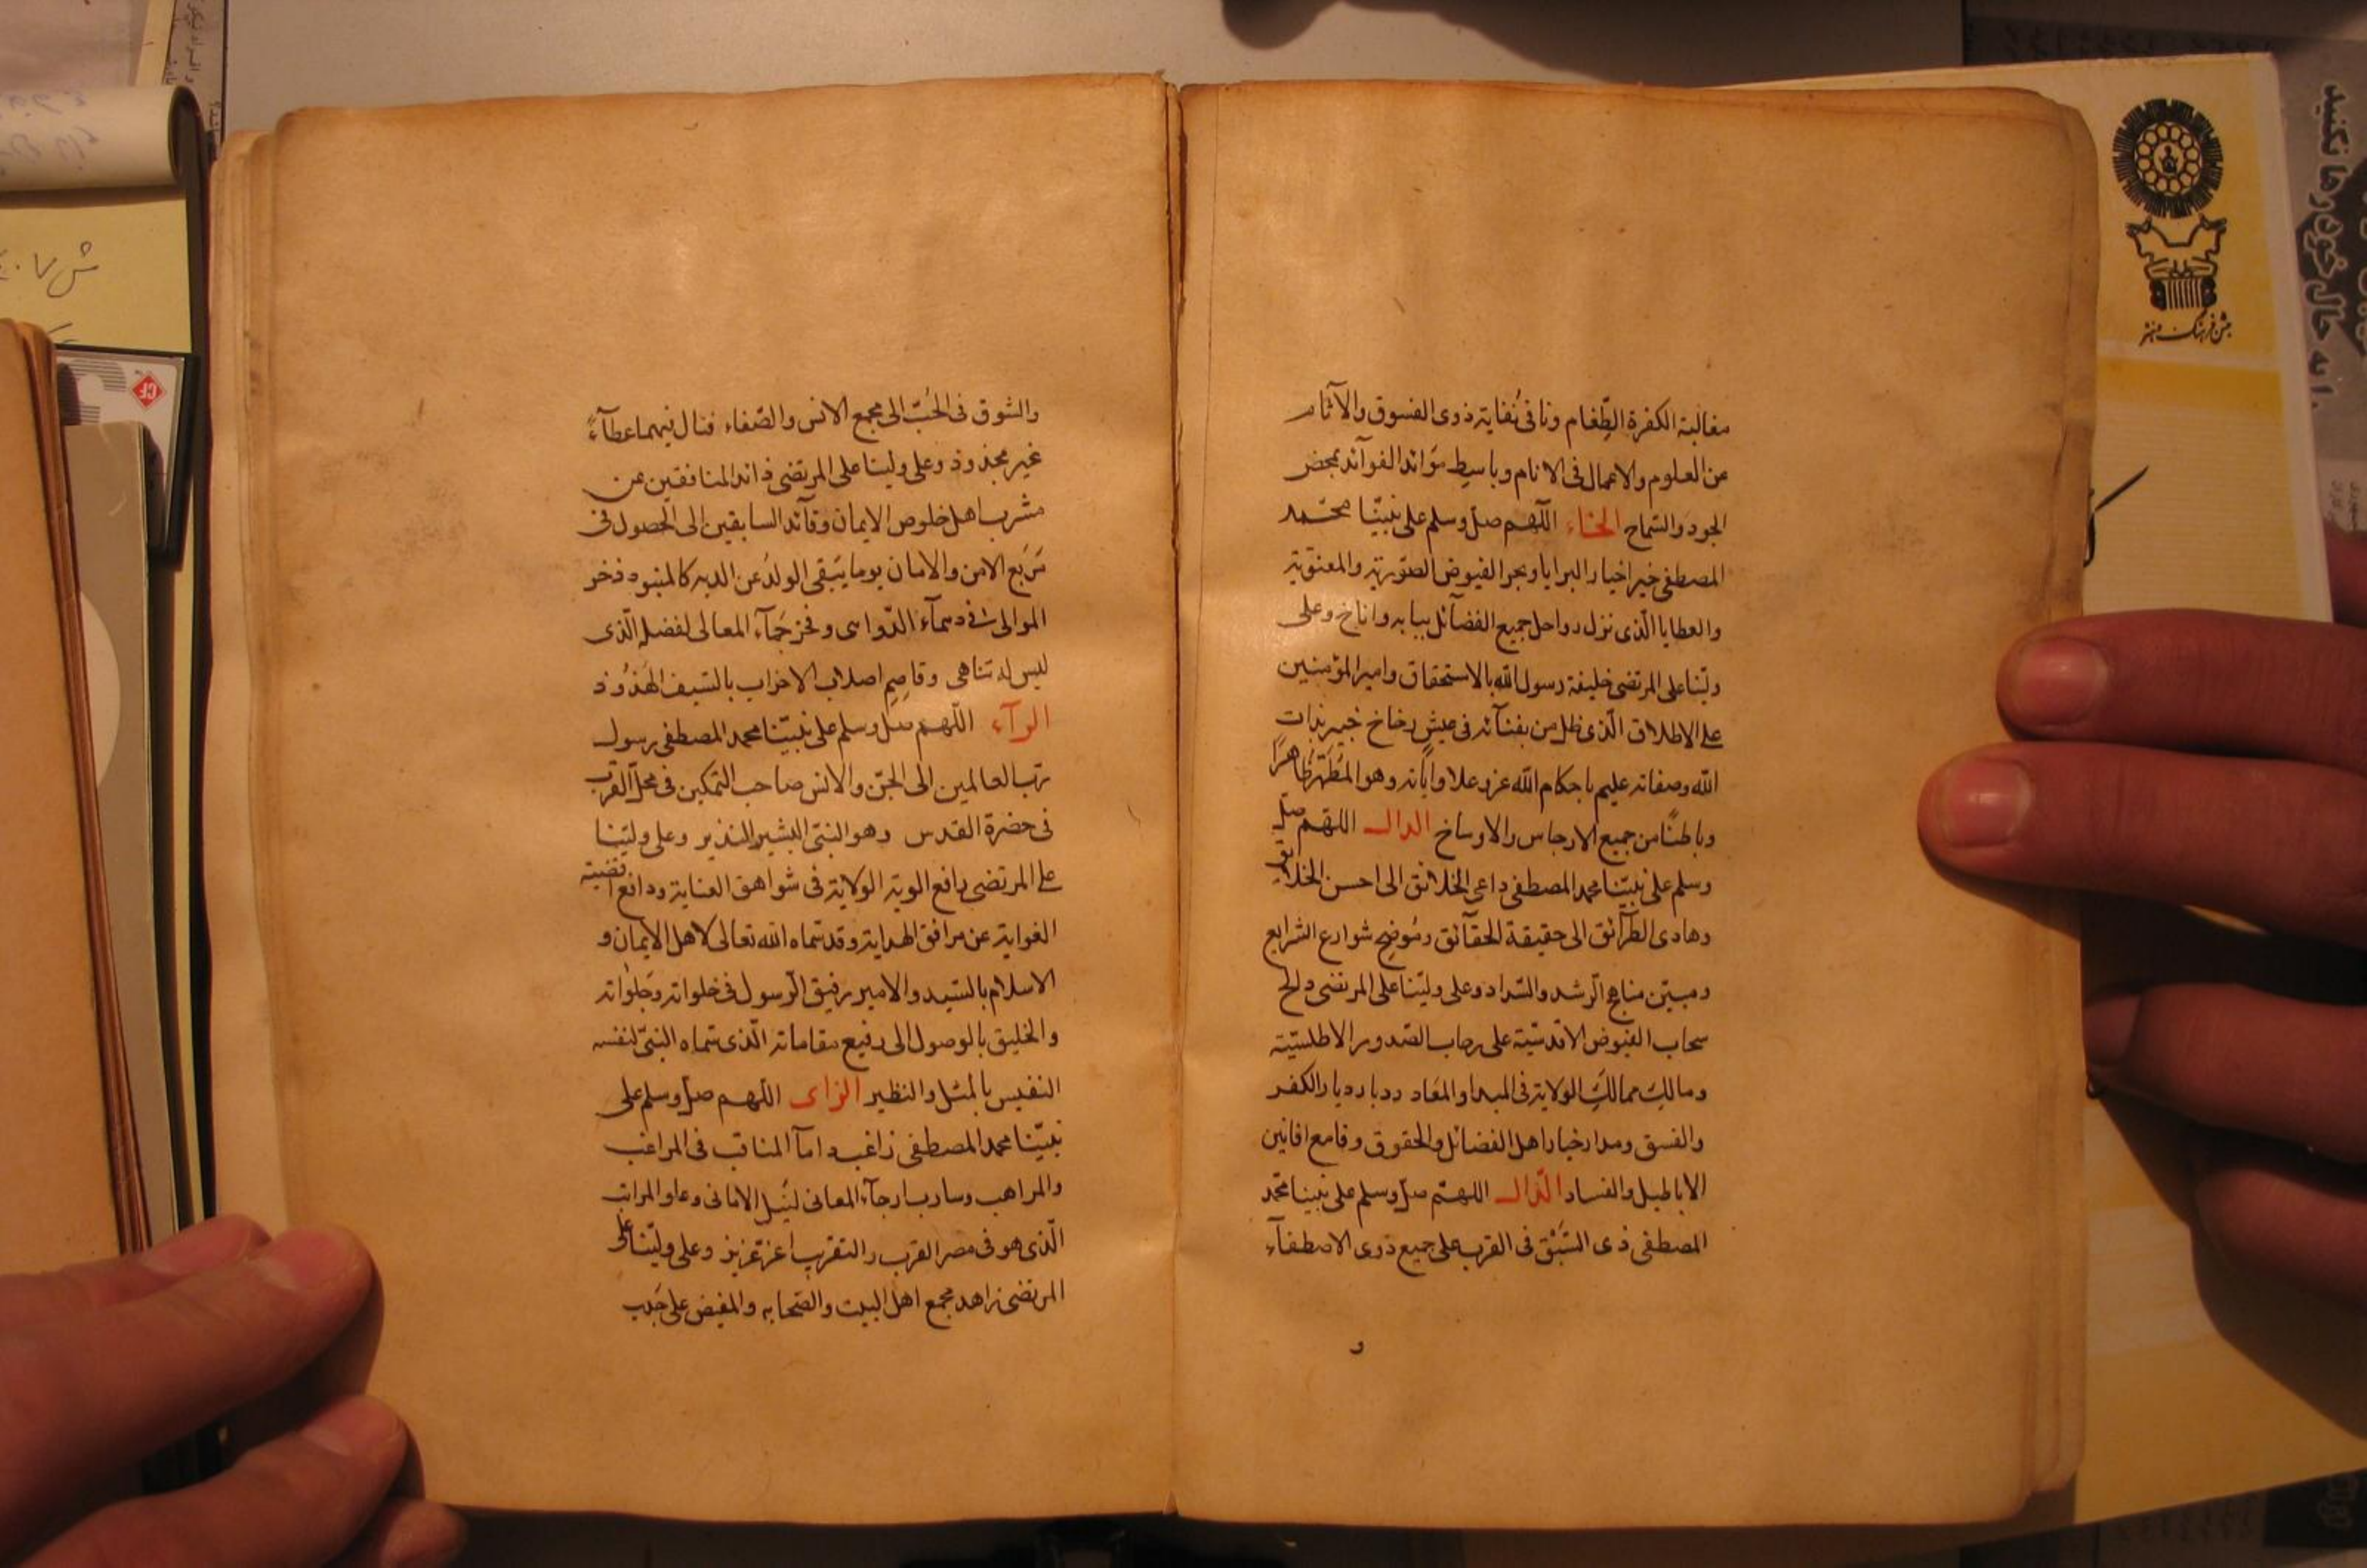 مغالبة الكفرة الطِّغام ونافى نُفاية ذوى الفسوق والآثار
عن العلوم والاعمال فى الانام وباسِط مَوائد الفوآئد بمحض
الجود والسّماح الخاء اللّهم صلّ وسلم على نبيّنا محمّد
المصطفى خير اخيار البرايا وبحر الفيوض الصّورية والمعنويّة
والعطايا الّذى نزل رواحل جميع الفضآئل ببابه واناخ وعلى
وليّنا على المرتضى خليفة رسول الله بالاستحقاق وامير المؤمنين
على الاطلاق الّذى ظل من بفنآئه فى عيش رخاخ خبير بذات
الله وصفاته عليم باحكام الله عز وعلا واياته وهو المُطَهَّر ظاهرًا
وباطنًا من جميع الارجاس والاوساخ الدال اللهم صلّ
وسلم على نبيّنا محمد المصطفى داعى الخلائق الى احسن الخلايق
وهادى الطرآئق الى حقيقة الحقآئق ومُوضِح شوارع الشرايع
ومبيّن مناهج الرّشد والسّداد وعلى وليّنا على المرتضى دالح
سحاب الفيوض الاقدسيّة على رحاب الصّدور الاطلسيّة
ومالِك ممالكِ الولاية فى المبدا والمعَاد ديار الكفر
والفسق ومدار خيار اهل الفضائل والحقوق وقامع افانين
الاباطيل والفساد الذّال اللهمّ صلّ وسلم على نبينا محمّد
المصطفى ذى السَّبْق فى القرب على جميع ذوى الاصطفآء
و
والشوق فى الحُبّ الى مجمع الانس والصّفاء فنال فيهما عطآءً
غير مجذوذ وعلى ولينا على المرتضى ذائد المنافقين عن
مشرب اهل خلوص الايمان وقآئد السابقين الى الحصول فى
مَربَع الامن والامان يوما يَبقى الولدُ عن الديه كالمنبوذ ذخر
الموالى فى دسمآء الدّواسى وفخر المعالى لفضله الّذى
ليس له تناهى وقاصِم اصلاب الاحزاب بالسّيف الهَذُوذ
الرآء اللّهم صلّ وسلم على نبيّنا محمد المصطفى رسول
ربّ العالمين الى الجنّ والانس صاحب التمكين فى محلّ القرب
فى حضرة القدس وهو النبىّ البشير النذير وعلى وليّنا
على المرتضى رافع الوية الولاية فى شواهق العناية ودافع اقضية
الغواية عن مرافق الهداية وقد سمّاه الله تعالى لاهل الايمان و
الاسلام بالسّيد والامير رفيق الرّسول فى خلواته وجَلَواته
والخليق بالوصول الى رفيع مقاماته الّذى سمّاه النبىّ لنفسه
النفيس بالمثل والنظير الزاى اللّهم صلّ وسلم على
نبيّنا محمد المصطفى زاغب دامآ المناقب فى المراغب
والمراهب وسارب ارجآء المعانى لنَيل الامانى وعلو المراتب
الّذى هو فى مصر القرب والتقرب اعز عزيز وعلى وليّنا على
المرتضى زاهد مجمع اهل البيت والصّحابه والمفيض على